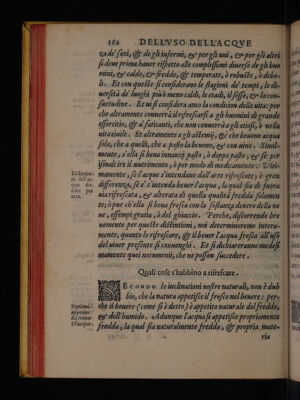 162 DELL'VSO DELL'ACQVE
za de' sani, & de gli infermi, & per gli uni, & per gli altri
si deue prima hauer rispetto alle complessioni diuerse de gli huo
mini, & calde, & fredde, & temperate, ò robuste, ò debo-
li. Et con queste si considerano le stagioni de' tempi, le di-
uersità de' luoghi più ò meno caldi, le etadi, il sesso, & la con-
suetudine. Et ui si considera anco la condition della uita: per
che altramente conuerrà il rifrescarsi a gli huomini di grande
essercitio, & a' faticanti, che non conuerrà a gli otiosi, ò nella
uita ciuile. Et altramente a gli astemij, & che beuono acqua
sola, che a quelli, che a pasto la beuono, & con uino. Simil-
mente, s'ella si beua innanzi pasto, ò doppo pasto, & se per
ismaltire il nutrimento, ò per modo di medicamento. Vlti-
mamente, se l'acque s'intendano dall'arte rifrescate, è gran
differenza, se s'intenda beuer l'acqua, la qual sia di fuora
uia rifrescata, & alterata di quella qualità fredda solamen
te; ò pur ch'ella si beua fresca con la sostanza dentro della ne
ue, essempi gratia, ò del ghiaccio. Perche, discorrendo bre
uemente per queste distintioni, noi determineremo intera-
mente, quanto lo rifrescare, & il beuer l'acqua fresca all'uso
del uiuer presente si conuenghi. Et si dichiareranno medesi
mamente quei nocumenti, che ne posson succedere.
Quali cose s'habbino a rifrescare.
SECONDO le inclinationi nostre naturali, non è dub
bio, che la natura appetisce il fresco nel beuere: per-
che il beuere (come si è detto) è appetito naturale del freddo,
& dell'humido. Adunque l'acqua si appetisce propriamente
fredda, la qual sia naturalmente fredda, & propria mate-
ria